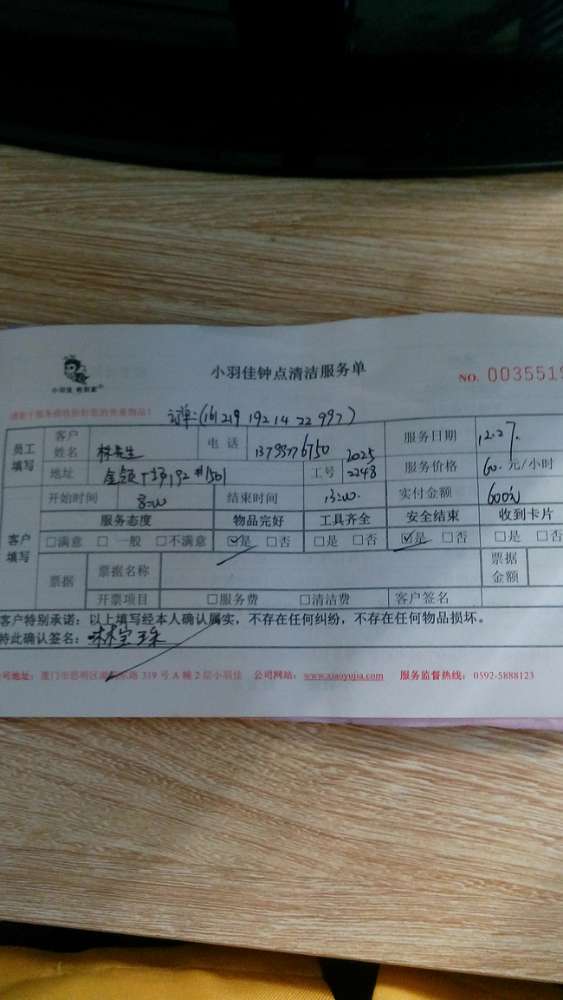 小羽佳钟点清洁服务单
小羽佳 NO. 0035515
请客户服务前收拾好您的贵重物品!
订单:(1612191921422997)
员工填写 客户姓名 林先生 电话 13799776750 服务日期 12.27
地址 #1501 工号 2025 2248 服务价格 60 元/小时
开始时间 8:00 结束时间 13:00 实付金额 600
服务态度 物品完好 工具齐全 安全结束 收到卡片
客户填写 □满意 □一般 □不满意 ☑是 □否 □是 □否 ☑是 □否 □是 □否
票据 票据名称 票据金额
开票项目 □服务费 □清洁费 客户签名
客户特别承诺:以上填写经本人确认属实,不存在任何纠纷,不存在任何物品损坏。
特此确认签名:林宝珠
公司地址:厦门市思明区 东路 319 号 A 幢 2 层小羽佳 公司网站:www.xiaoyujia.com 服务监督热线:0592-5888123